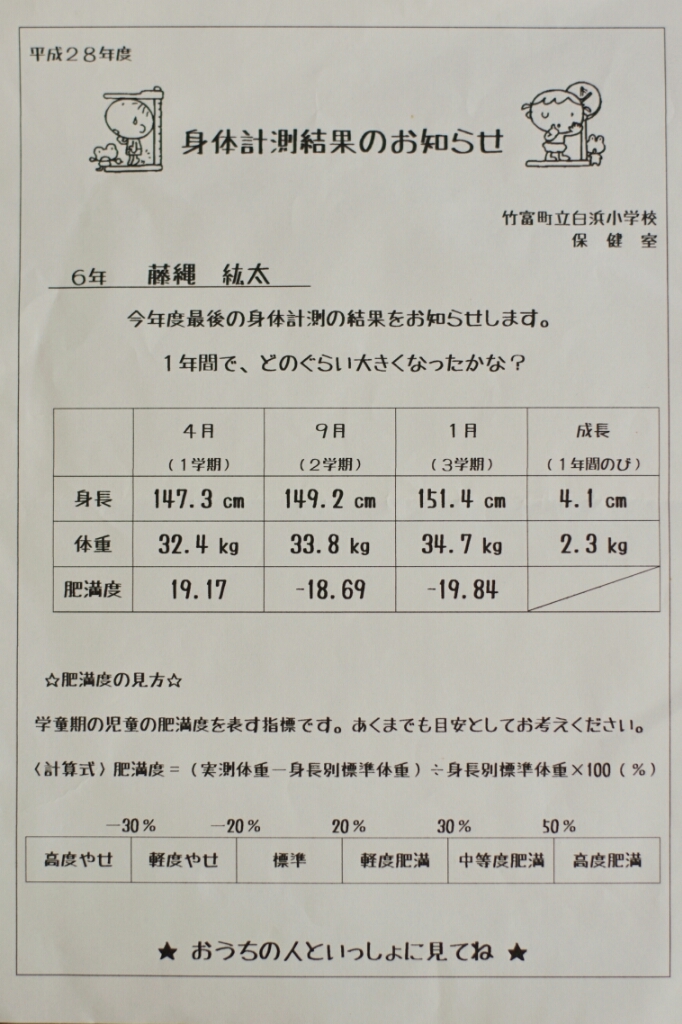 平成28年度
身体計測結果のお知らせ
竹富町立白浜小学校
保 健 室
6年 藤縄 紘太
今年度最後の身体計測の結果をお知らせします。
1年間で、どのぐらい大きくなったかな？
4月 9月 1月 成長
(1学期) (2学期) (3学期) (1年間のび)
身長 147.3 cm 149.2 cm 151.4 cm 4.1 cm
体重 32.4 kg 33.8 kg 34.7 kg 2.3 kg
肥満度 19.17 -18.69 -19.84
☆肥満度の見方☆
学童期の児童の肥満度を表す指標です。あくまでも目安としてお考えください。
〈計算式〉肥満度＝（実測体重－身長別標準体重）÷身長別標準体重×100（％）
－30％ －20％ 20％ 30％ 50％
高度やせ 軽度やせ 標準 軽度肥満 中等度肥満 高度肥満
★ おうちの人といっしょに見てね ★